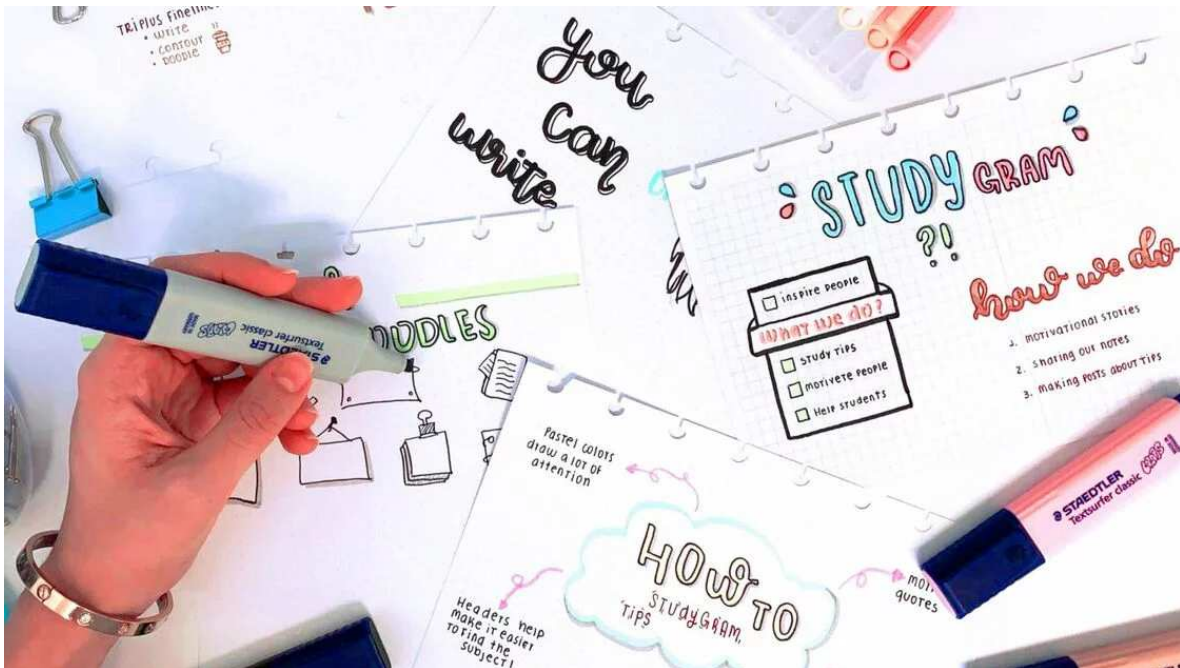 TRIPLUS
• WRITE
• CONTOUR
• DOODLE
you
can
write
STUDYGRAM
?!
INSPIRE PEOPLE
WHAT WE DO?
STUDY TIPS
MOTIVETE PEOPLE
HELP STUDENTS
how we do
1. MOTIVATIONAL STORIES
2. SHARING OUR NOTES
3. MAKING POSTS ABOUT TIPS
STAEDTLER
Textsurfer classic
MADE IN
GERMANY
PASTEL COLORS
DRAW A LOT OF
ATTENTION
HOW TO
STUDYGRAM
TIPS
QUOTES
HEADERS HELP
MAKE IT EASIER
TO FIND THE
SUBJECT!
STAEDTLER
Textsurfer classic